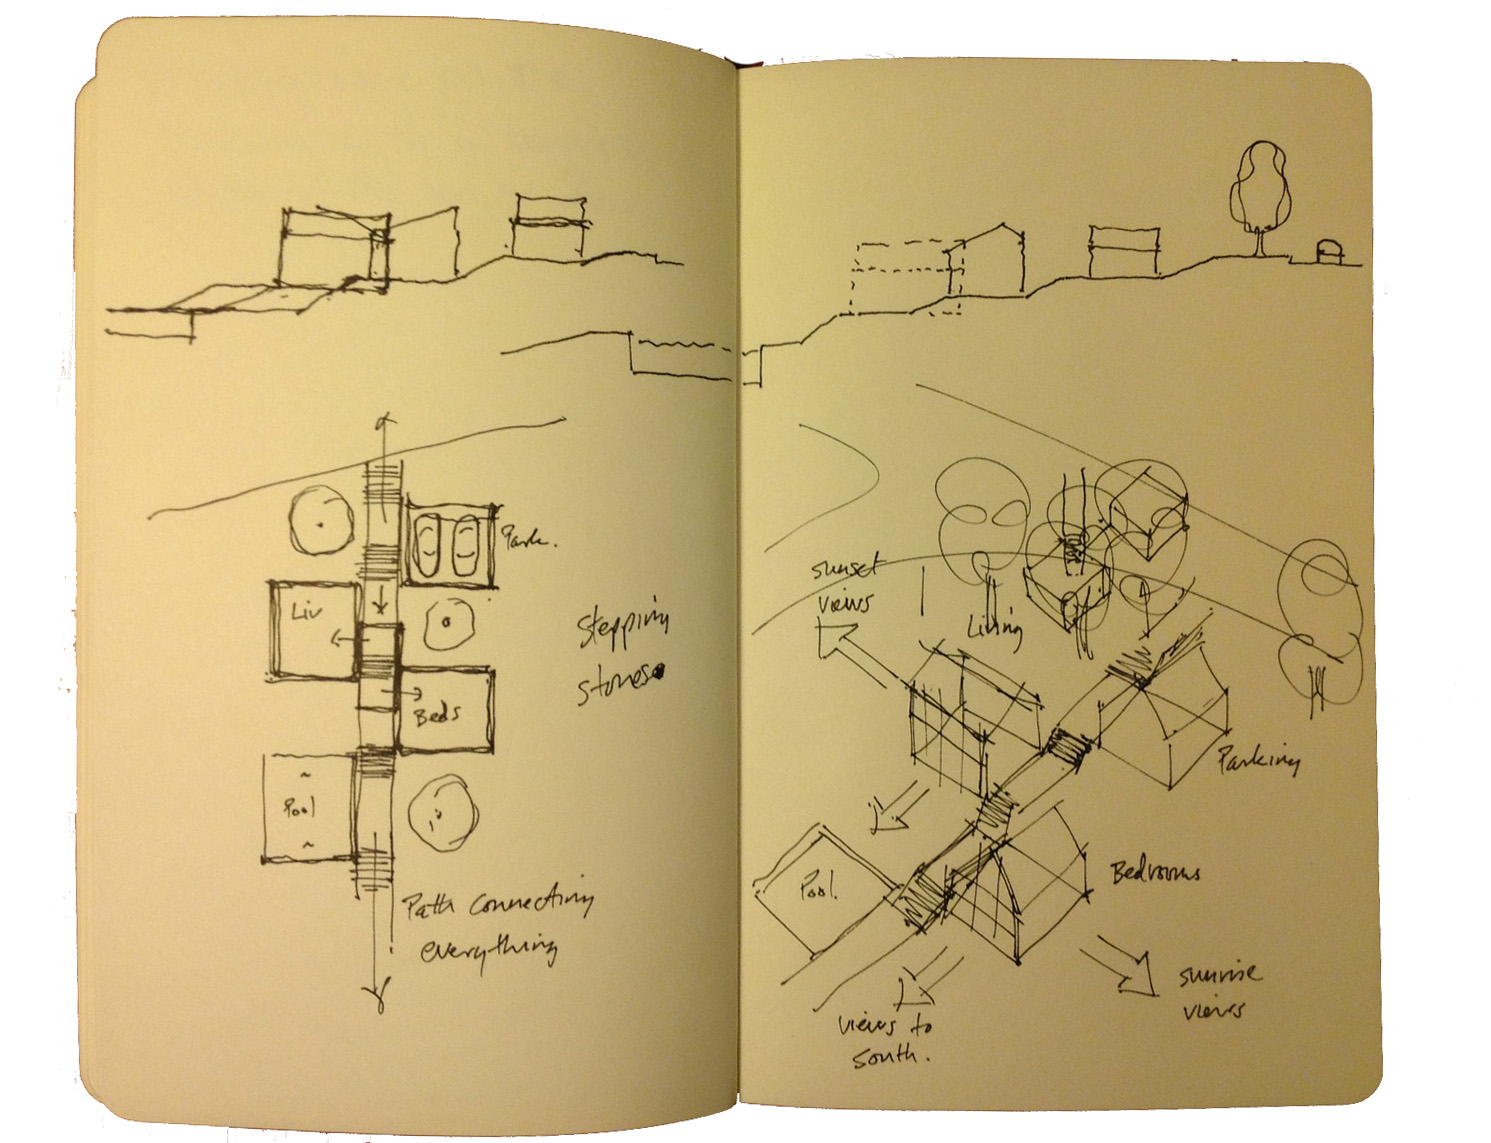 Park.
Liv
Stepping
stones
Beds
Pool
Path connecting
everything
sunset
views
Living
Parking
Pool.
Bedrooms
sunrise
views
views to
south.